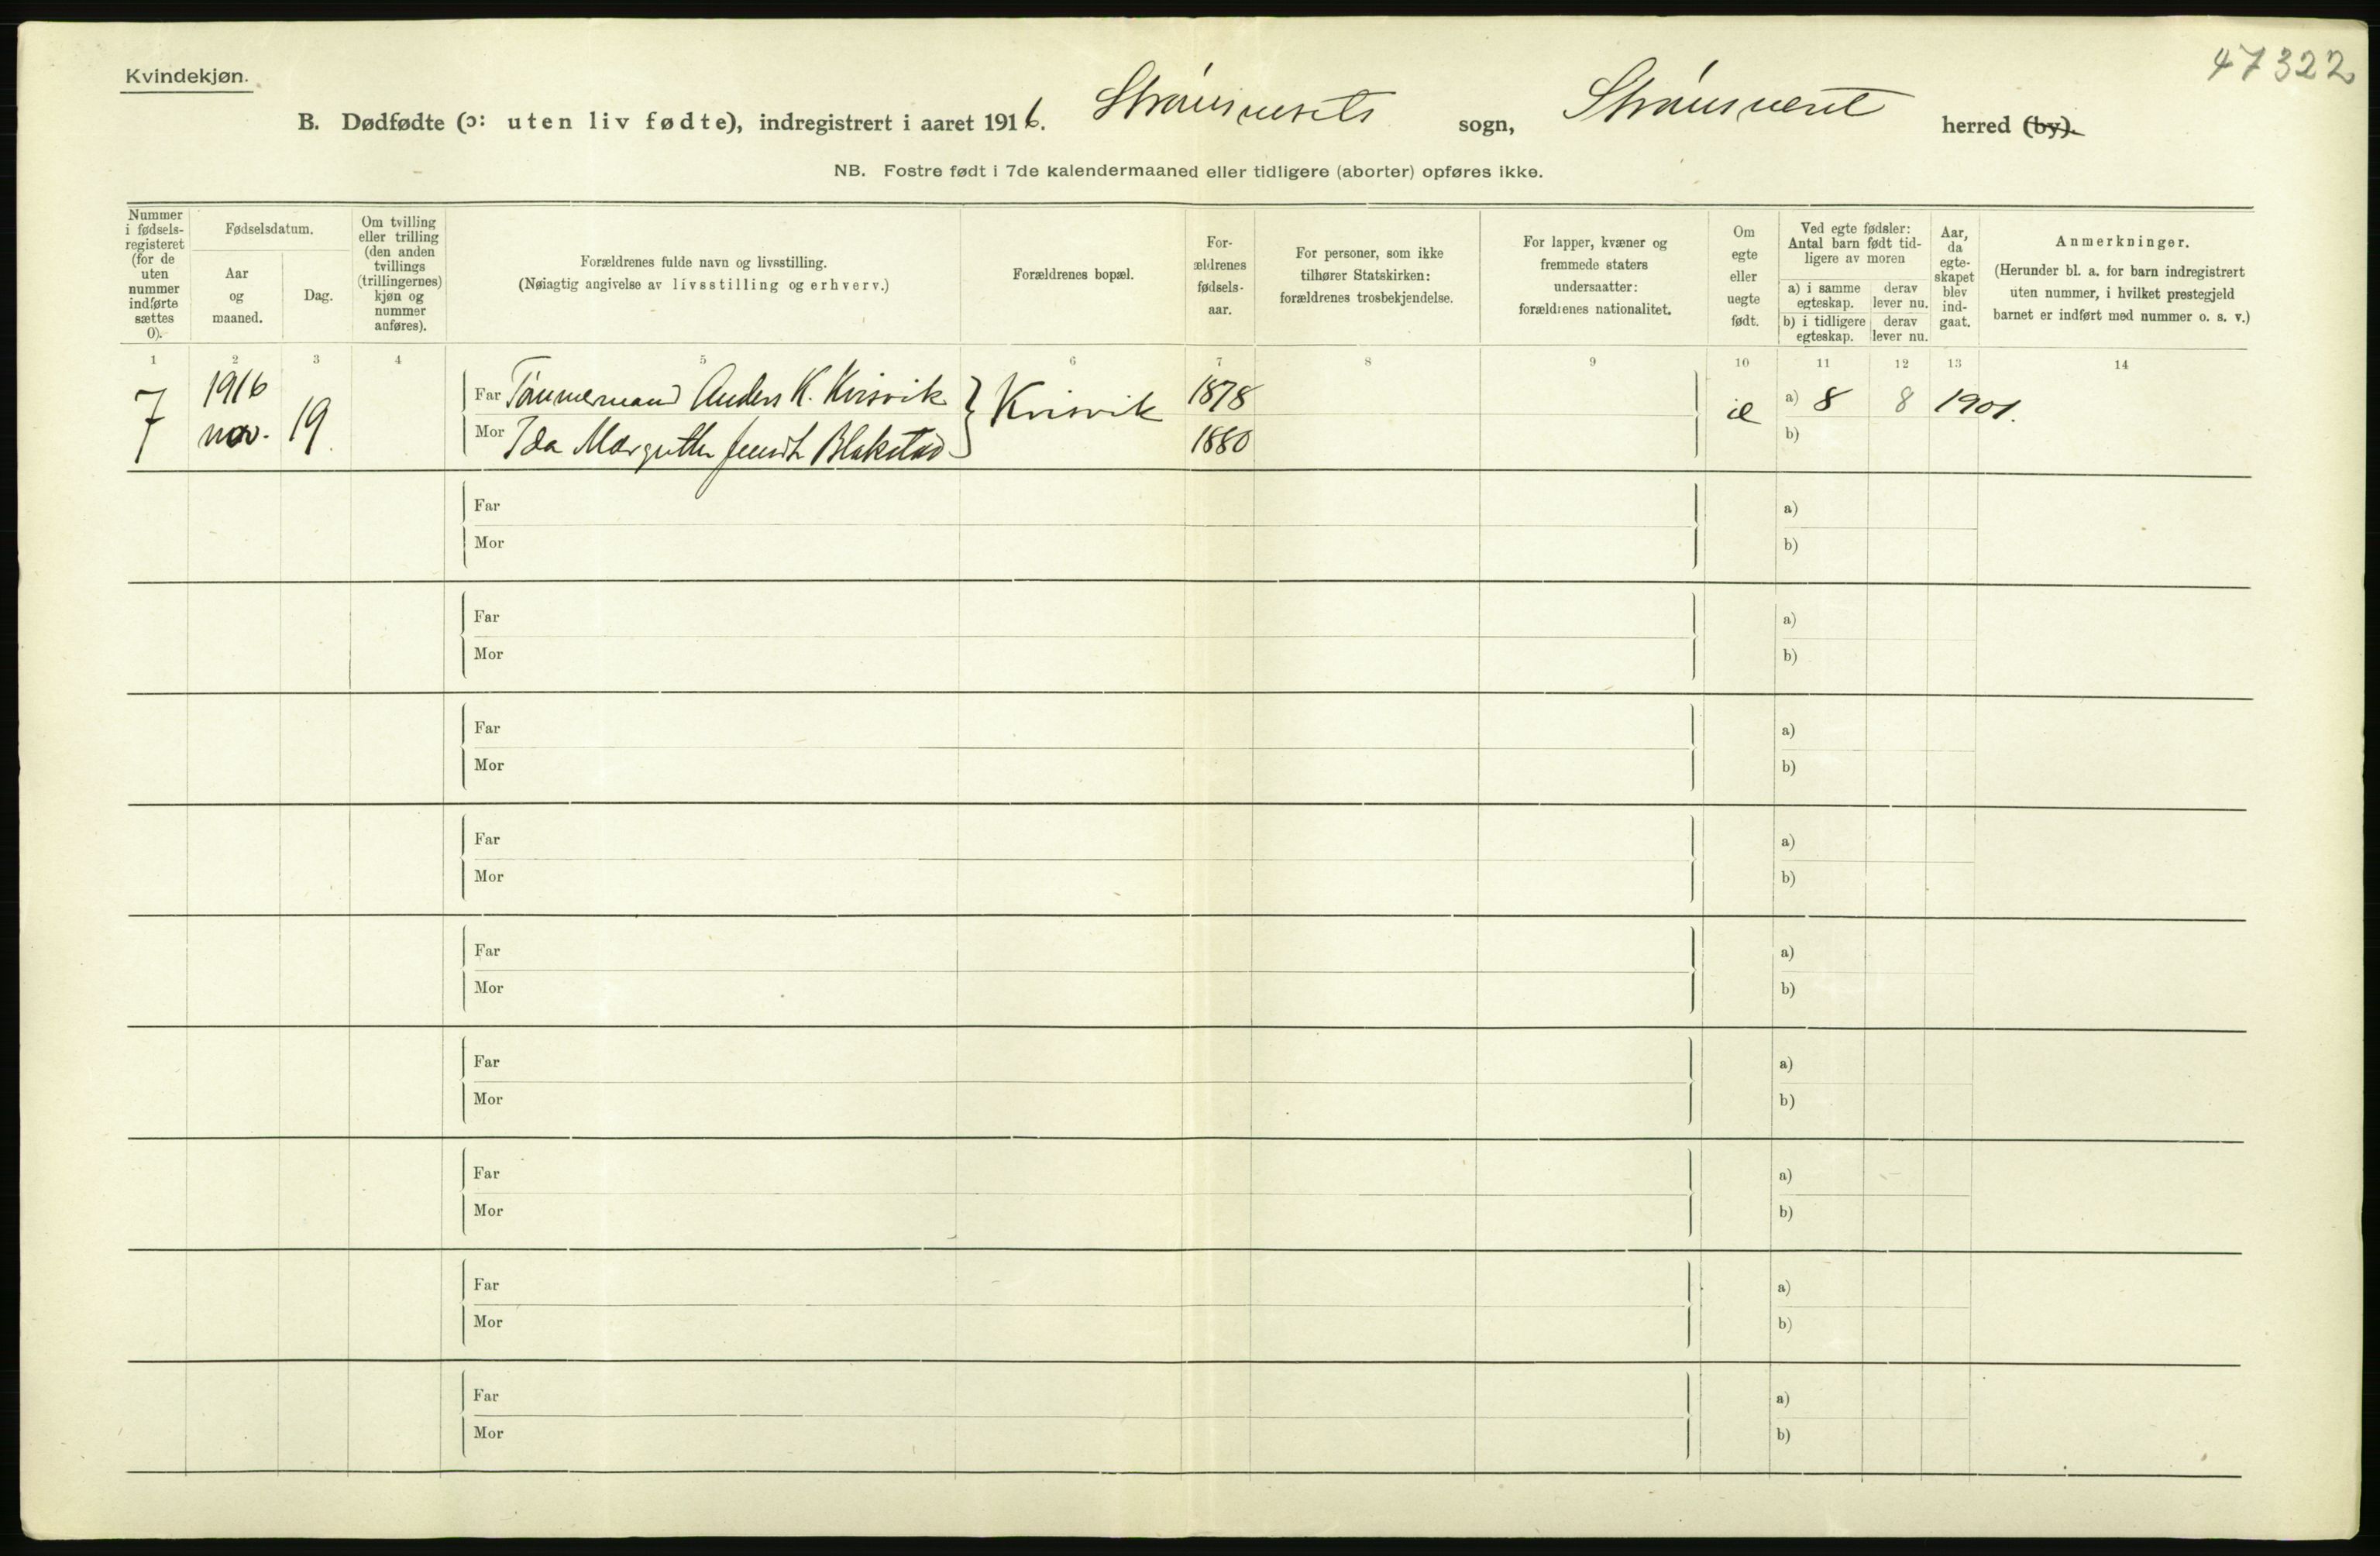 47322
Kvindekjøn.
B. Dødfødte (ɔ: uten liv fødte), indregistrert i aaret 1916. Straumsnesets sogn, Straumsneset herred (by).
NB. Fostre født i 7de kalendermaaned eller tidligere (aborter) opføres ikke.
Nummer i fødsels-registeret (for de uten nummer indførte sættes 0).
Fødselsdatum.
Aar og maaned.
Dag.
Om tvilling eller trilling (den anden tvillings (trillingernes) kjøn og nummer anføres).
Forældrenes fulde navn og livsstilling.
(Nøiagtig angivelse av livsstilling og erhverv.)
Forældrenes bopæl.
For-ældrenes fødsels-aar.
For personer, som ikke tilhører Statskirken: forældrenes trosbekjendelse.
For lapper, kvæner og fremmede staters undersaatter: forældrenes nationalitet.
Om egte eller uegte født.
Ved egte fødsler: Antal barn født tid-ligere av moren
a) i samme egteskap. derav lever nu.
b) i tidligere egteskap. derav lever nu.
Aar, da egte-skapet blev ind-gaat.
Anmerkninger.
(Herunder bl. a. for barn indregistrert uten nummer, i hvilket prestegjeld barnet er indført med nummer o. s. v.)
1 2 3 4 5 6 7 8 9 10 11 12 13 14
7 1916 nov. 19.
Far Tømmermand Anders K. Krisvik Krisvik 1878 a) 8 8 1901.
Mor Ida Margrethe Blakstad 1880 b)
Far a)
Mor b)
Far a)
Mor b)
Far a)
Mor b)
Far a)
Mor b)
Far a)
Mor b)
Far a)
Mor b)
Far a)
Mor b)
Far a)
Mor b)
Far a)
Mor b)